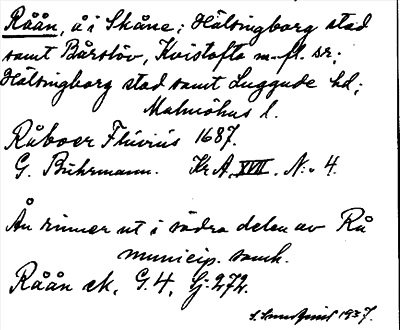 Råån, å i Skåne; Hälsingborg stad
samt Bårslöv, Kvistofta m. fl. sr;
Hälsingborg stad samt Luggude hd;
Malmöhus l.
Råboer Fluvius 1687.
G. Buhrmann. Kr A, XVII, N:o 4.
Ån rinner ut i södra delen av Rå
municip. samh.
Råån ek, G. 4, Gj. 272.
1937.